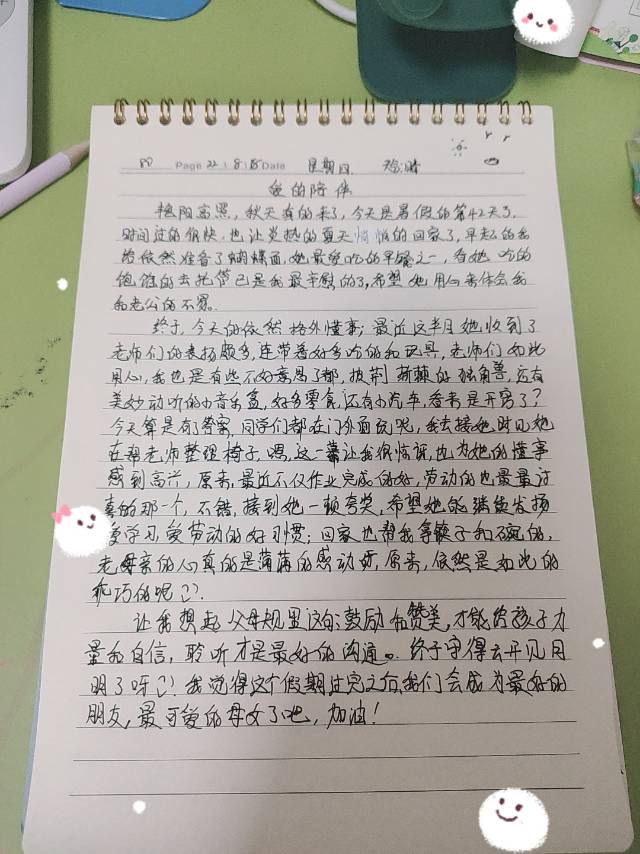 Page 22.8.18 Date 星期四 晴
爱的陪伴
艳阳高照，秋天真的来了，今天是暑假的第42天了，
时间过的很快，也让炎热的夏天悄悄的回家了，早起的我
给依然准备了蝴蝶面，她最爱吃的早餐之一，看她吃的
饱饱的去托管已是我最幸慰的了，希望她用心来体会我
和老公的不易。
终于，今天的依然格外懂事；最近这半月她收到了
老师们的表扬颇多，连带着好多吃的和玩具，老师们如此
用心，我也是有些不好意思了都，披荆斩棘的独角兽，还有
美妙动听的小音乐盒，好多零食，还有小汽车，看来是开窍了？
今天算是有了答案，同学们都在门外面玩呢，我去接她时见她
在帮老师整理椅子，嗯，这一幕让我很惊讶，也为她的懂事
感到高兴，原来，最近不仅作业完成的好，劳动的也是最最认
真的那一个，不错，接到她一顿夸奖，希望她能继续发扬
爱学习，爱劳动的好习惯；回家也帮我拿筷子和碗的，
老母亲的心真的是满满的感动呀，原来，依然是如此的
乖巧的呢
让我想起父母规里这句：鼓励和赞美，才能给孩子力
量和自信，聆听才是最好的沟通。终于守得云开见月
明了呀 我觉得这个假期过完之后我们会成为最好的
朋友，最可爱的母女了吧，加油！